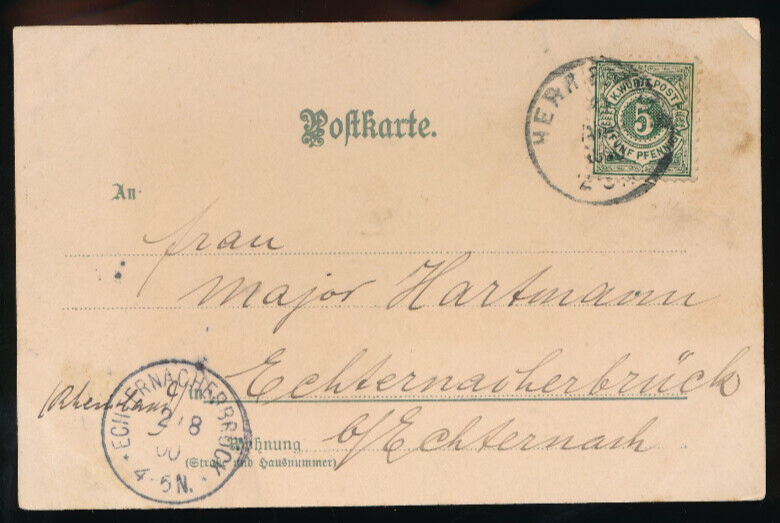 Postkarte.
K. WÜRTT. POST
5
FÜNF PFENNIG
HERR
An
Frau
Major Hartmann
in Echternacherbrück
(Rheinland)
b/Echternach
Wohnung
(Straße und Hausnummer)
ECHTERNACHERBRÜCK
2 8
00
4-5N.